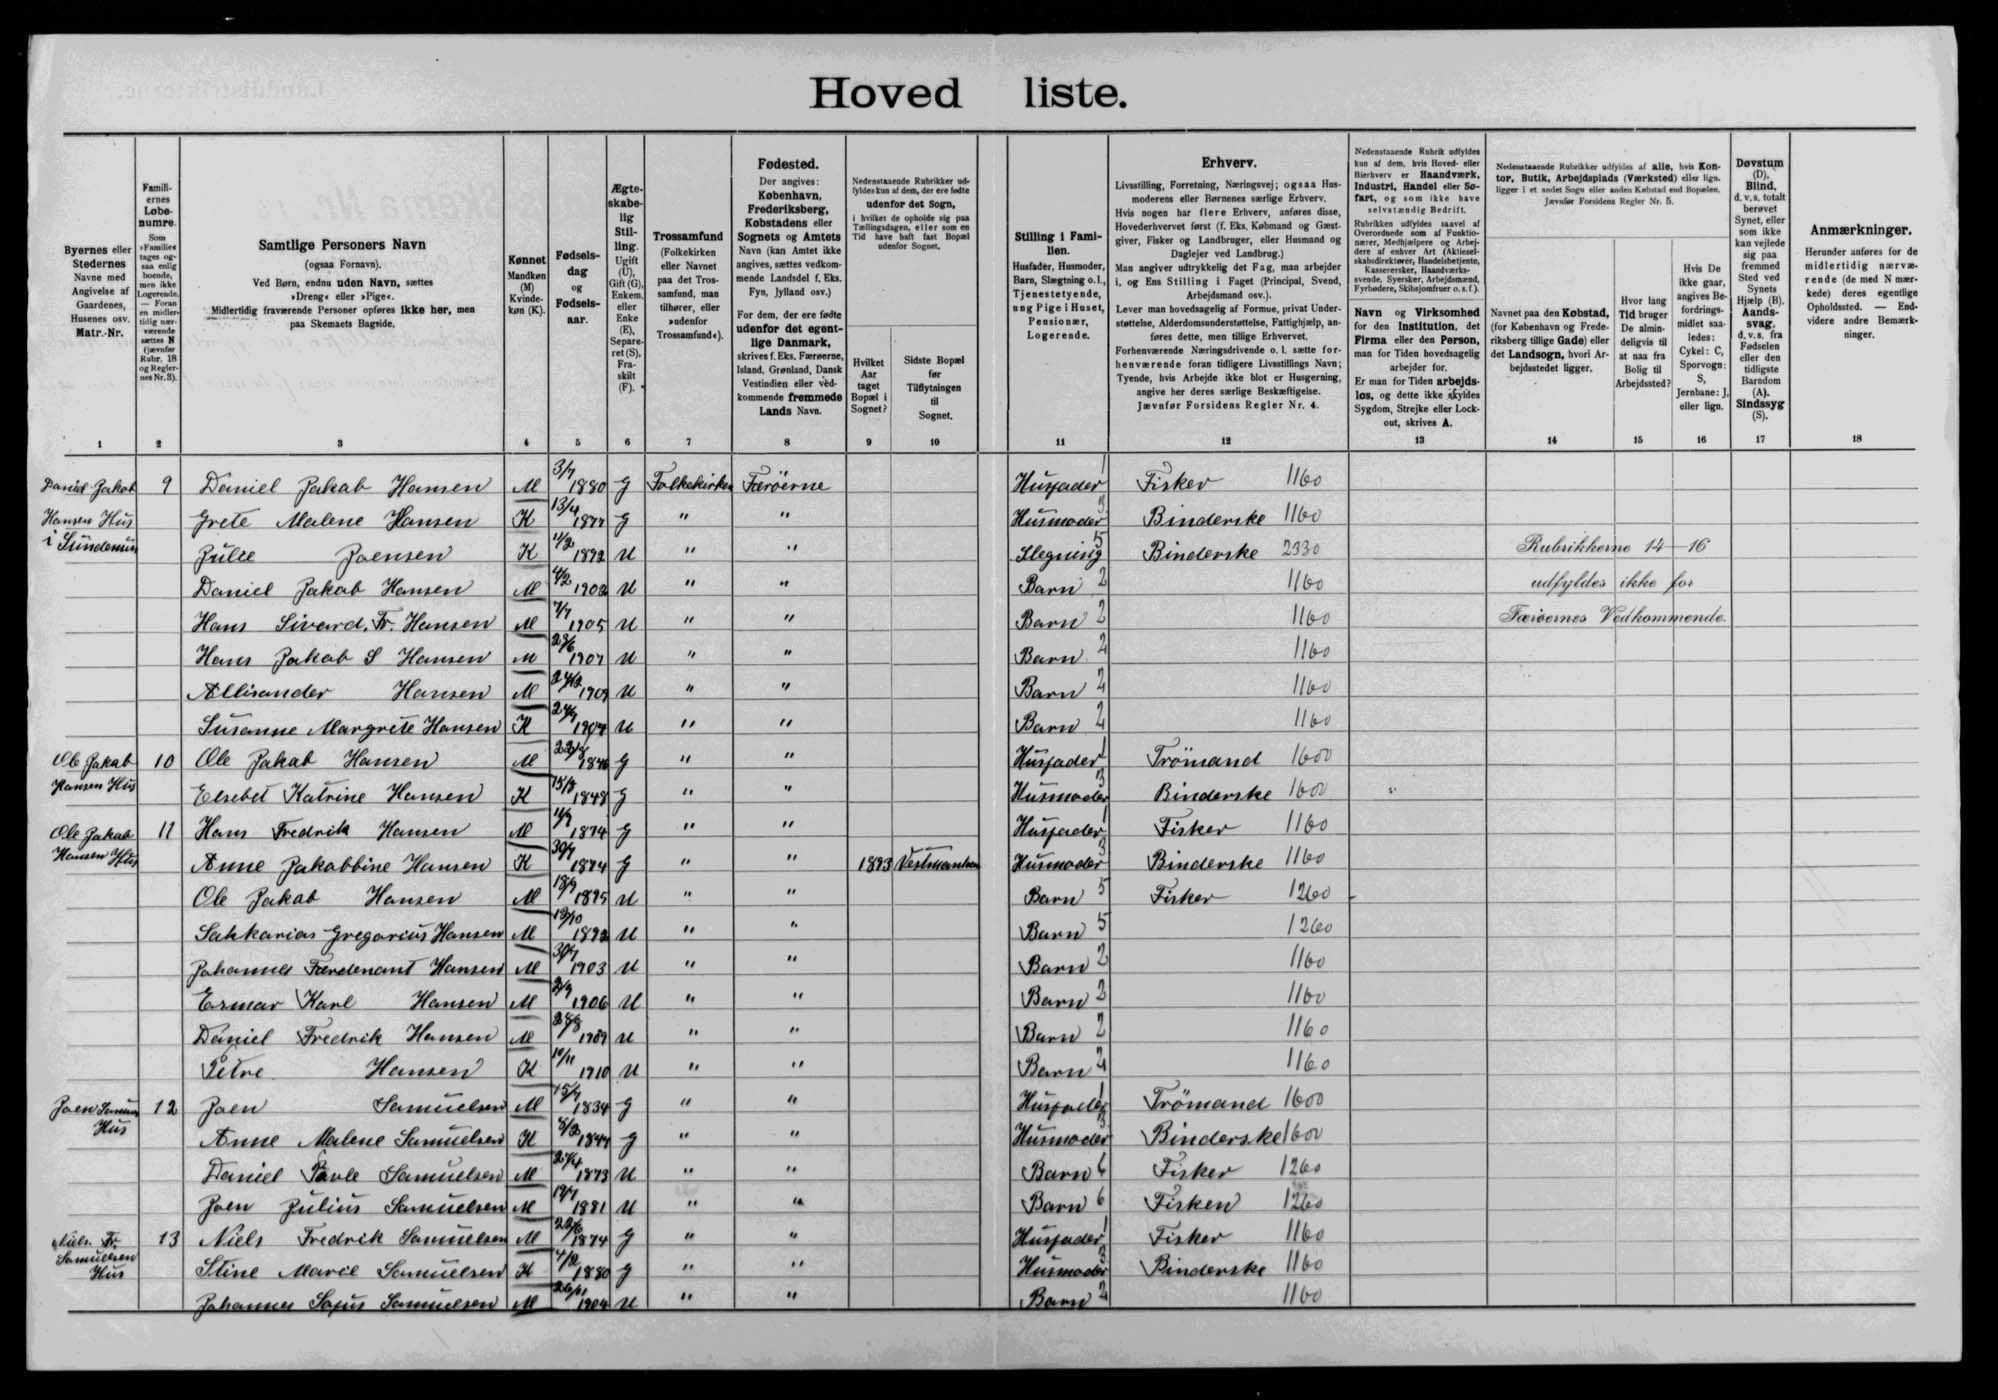 Hoved liste.
Byernes eller Stedernes Navne med Angivelse af Gaardenes, Husenes osv. Matr.-Nr.
Familiernes Løbenumre. Som »Familie« tages ogsaa enlig boende, men ikke Logerende. — Foran en midlertidig nærværende sættes N (jævnfør Rubr. 18 og Reglernes Nr. 3).
Samtlige Personers Navn (ogsaa Fornavn). Ved Børn, endnu uden Navn, sættes »Dreng« eller »Pige«. Midlertidig fraværende Personer opføres ikke her, men paa Skemaets Bagside.
Kønnet Mandkøn (M) Kvindekøn (K).
Fødselsdag og Fødselsaar.
Ægteskabelig Stilling. Ugift (U), Gift (G), Enkem. eller Enke (E), Separeret (S), Fraskilt (F).
Trossamfund (Folkekirken eller Navnet paa det Trossamfund, man tilhører, eller »udenfor Trossamfund«).
Fødested. Der angives: København, Frederiksberg, Købstadens eller Sognets og Amtets Navn (kan Amtet ikke angives, sættes vedkommende Landsdel f. Eks. Fyn, Jylland osv.) For dem, der ere fødte udenfor det egentlige Danmark, skrives f. Eks. Færøerne, Island, Grønland, Dansk Vestindien eller vedkommende fremmede Lands Navn.
Nedenstaaende Rubrikker udfyldes kun af dem, der ere fødte udenfor det Sogn, i hvilket de opholde sig paa Tællingsdagen, eller som en Tid have haft fast Bopæl udenfor Sognet.
Hvilket Aar taget Bopæl i Sognet?
Sidste Bopæl før Tilflytningen til Sognet.
Stilling i Familien. Husfader, Husmoder, Barn, Slægtning o. l., Tjenestetyende, ung Pige i Huset, Pensionær, Logerende.
Erhverv. Livsstilling, Forretning, Næringsvej; ogsaa Husmoderens eller Børnenes særlige Erhverv. Hvis nogen har flere Erhverv, anføres disse, Hovederhvervet først (f. Eks. Købmand og Gæstgiver, Fisker og Landbruger, eller Husmand og Daglejer ved Landbrug.) Man angiver udtrykkelig det Fag, man arbejder i, og Ens Stilling i Faget (Principal, Svend, Arbejdsmand osv.). Lever man hovedsagelig af Formue, privat Understøttelse, Alderdomsunderstøttelse, Fattighjælp, anføres dette, men tillige Erhvervet. Forhenværende Næringsdrivende o. l. sætte forhenværende foran tidligere Livsstillings Navn; Tyende, hvis Arbejde ikke blot er Husgerning, angive her deres særlige Beskæftigelse. Jævnfør Forsidens Regler Nr. 4.
Nedenstaaende Rubrik udfyldes kun af dem, hvis Hoved- eller Bierhverv er Haandværk, Industri, Handel eller Søfart, og som ikke have selvstændig Bedrift. Rubrikken udfyldes saavel af Overordnede som af Funktionærer, Medhjælpere og Arbejdere af enhver Art (Aktieselskabsdirektører, Handelsbetjente, Kasserersker, Haandværkssvende, Syersker, Arbejdsmænd, Fyrbødere, Skibsjomfruer o. s. f.).
Navn og Virksomhed for den Institution, det Firma eller den Person, man for Tiden hovedsagelig arbejder for. Er man for Tiden arbejdsløs, og dette ikke skyldes Sygdom, Strejke eller Lockout, skrives A.
Nedenstaaende Rubrikker udfyldes af alle, hvis Kontor, Butik, Arbejdsplads (Værksted) eller lign. ligger i et andet Sogn eller anden Købstad end Bopælen. Jævnfør Forsidens Regler Nr. 5.
Navnet paa den Købstad, (for København og Frederiksberg tillige Gade) eller det Landsogn, hvori Arbejdsstedet ligger.
Hvor lang Tid bruger De almindeligvis til at naa fra Bolig til Arbejdssted?
Hvis De ikke gaar, angives Befordringsmidlet saaledes: Cykel: C, Sporvogn: S, Jernbane: J, eller lign.
Døvstum (D). Blind, d. v. s. totalt berøvet Synet, eller som ikke kan vejlede sig paa fremmed Sted ved Synets Hjælp (B). Aandssvag, d. v. s. fra Fødselen eller den tidligste Barndom (A). Sindssyg (S).
Anmærkninger. Herunder anføres for de midlertidig nærværende (de med N mærkede) deres egentlige Opholdssted. — Endvidere andre Bemærkninger.
1 2 3 4 5 6 7 8 9 10 11 12 13 14 15 16 17 18
Daniel Jakob 9 Daniel Jakab Hansen M 3/7 1880 G Folkekirken Færöerne Husfader 1 Fisker 1160
Hansen Hus Grete Malene Hansen K 13/4 1877 G " " Husmoder 3 Binderske 1160
i Joensen K 1892 U " " Slegning 5 Binderske 2330 Rubrikkerne 14—16
Daniel Jakob Hansen M 4/2 1902 U " " Barn 2 1160 udfyldes ikke for
Hans Sivard. Fr. Hansen M 7/7 1905 U " " Barn 2 1160 Færøernes Vedkommende.
Hans Jakob S Hansen M 28/6 1907 U " " Barn 2 1160
Allisander Hansen M 1909 U " " Barn 2 1160
Susanne Margrete Hansen K U " " Barn 2 1160
Ole Jakob 10 Ole Jakob Hansen M 1846 G " " Husfader 1 Trömand 1600
Hansen Hus Elsebet Katrine Hansen K 15/8 1848 G " " Husmoder 3 Binderske 1600 "
Ole Jakob 11 Hans Fredrik Hansen M 1874 G " " Husfader 1 Fisker 1160
Hansen Hus Anne Jakobbine Hansen K 30/7 1874 G " " 1893 Husmoder 3 Binderske 1160
Ole Jakob Hansen M 18/9 1895 U " " Barn 5 Fisker 1260
Sakkarias Gregarius Hansen M 13/10 U " " Barn 5 1260
Johannes Færdenant Hansen M 30/7 1903 U " " Barn 2 1160
Karl Hansen M 2/9 1906 U " " Barn 2 1160
Daniel Fredrik Hansen M 28/8 1909 U " " Barn 2 1160
Petre Hansen K 10/11 1910 U " " Barn 2 1160
Joen 12 Joen Samuelsen M 15/7 1834 G " " Husfader 1 Trömand 1600
Hus Anne Malene Samuelsen K 1844 G " " Husmoder 3 Binderske 1600
Daniel Povle Samuelsen M 1873 U " " Barn 6 Fisker 1260
Joen Julius Samuelsen M 1881 U " " Barn 6 Fisken 1260
Niels Fr. 13 Niels Fredrik Samuelsen M 1874 G " " Husfader 1 Fisker 1160
Samuelsen Stine Marie Samuelsen K 1880 G " " Husmoder 3 Binderske 1160
Hus Johannes Sofus Samuelsen M 26/11 1904 U " " Barn 2 1160